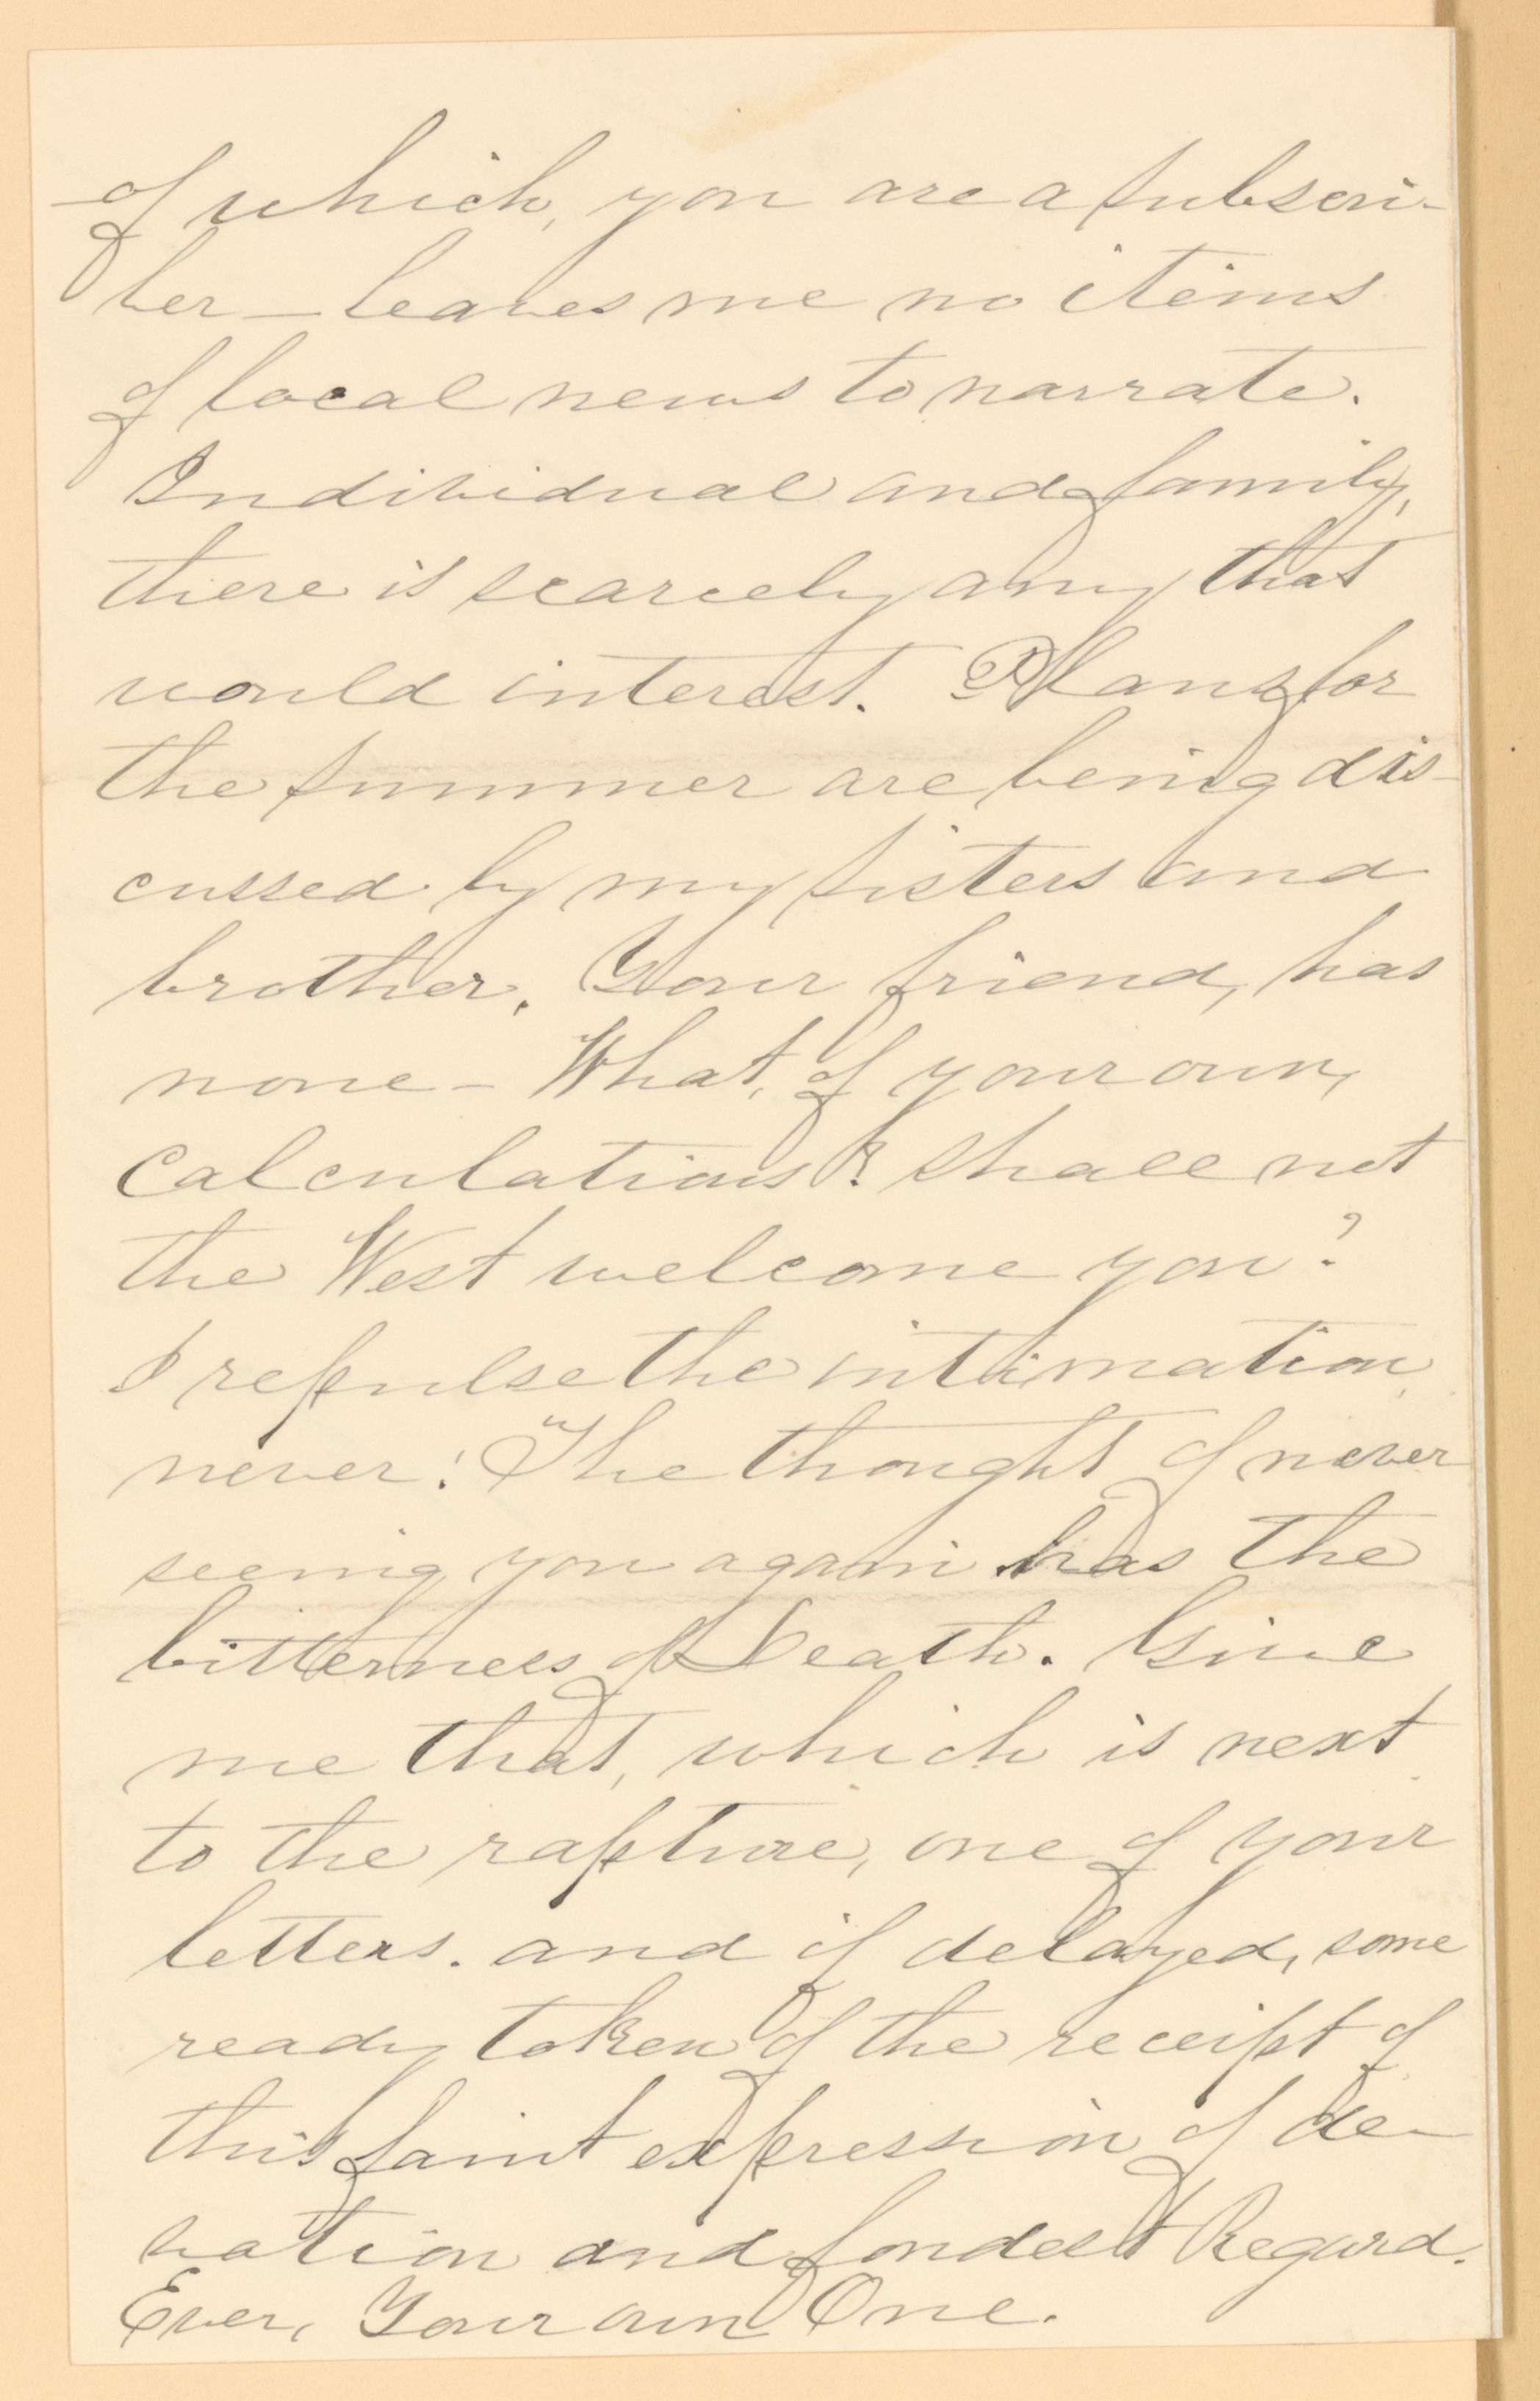 of which, you are a subscri-
ber — leaves me no items
of local news to narrate.
Individual and family,
there is scarcely any that
would interest. Plans for
the summer are being dis-
cussed by my sisters and
brother. Your friend, has
none — What, of your own,
calculations? Shall not
the West welcome you?
I repulse the intimation,
never! The thought of never
seeing you again has the
bitterness of Death. Give
me that, which is next
to the rapture, one of your
letters. and if delayed, some
ready token of the receipt of
this faint expression of de-
votion and fondest Regard.
Ever, Your own One.